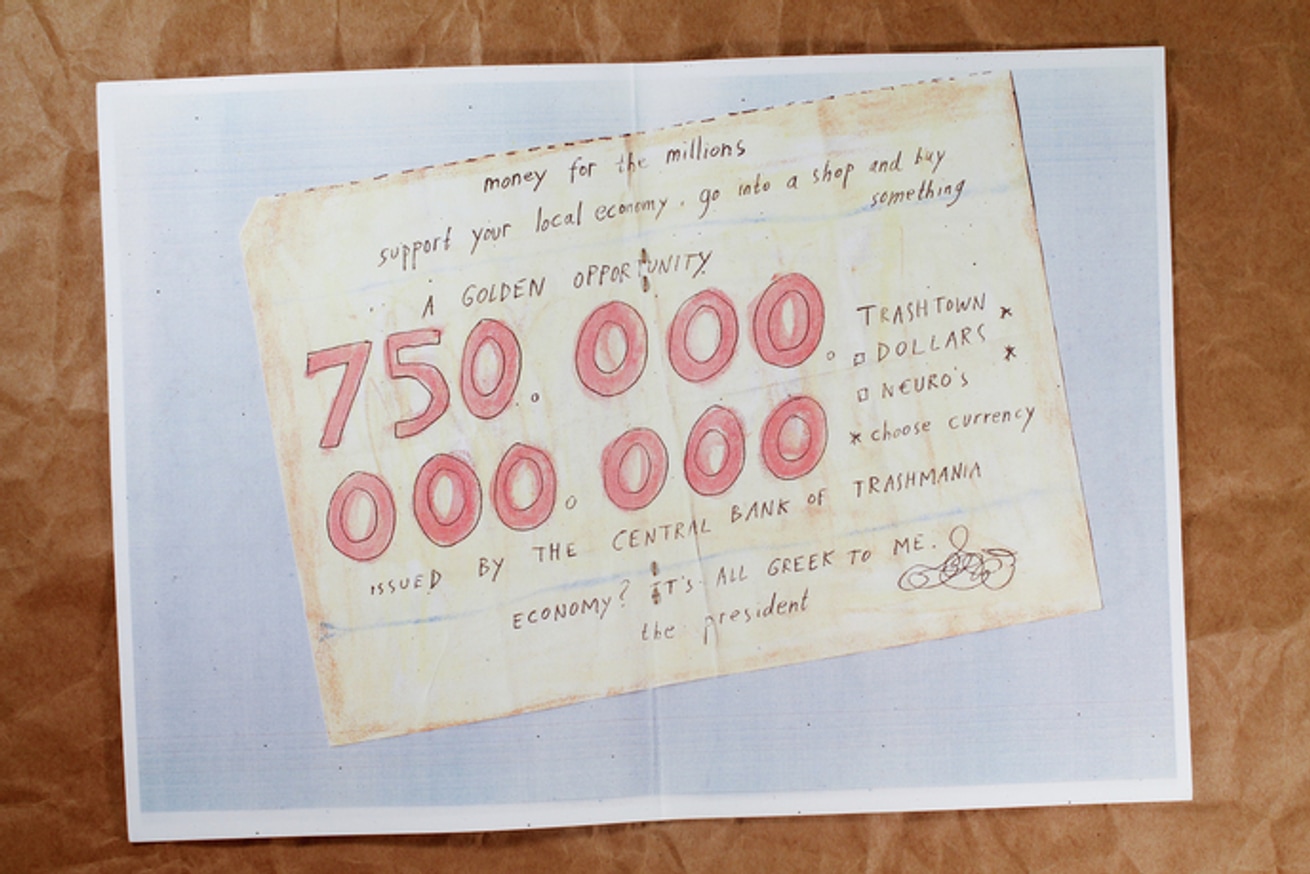 money for the millions
support your local economy. go into a shop and buy
something
A GOLDEN OPPORTUNITY
750.000.
000.000
TRASHTOWN
□ DOLLARS *
□ N€URO'S *
* choose currency
ISSUED BY THE CENTRAL BANK OF TRASHMANIA
ECONOMY? IT'S ALL GREEK TO ME.
the president